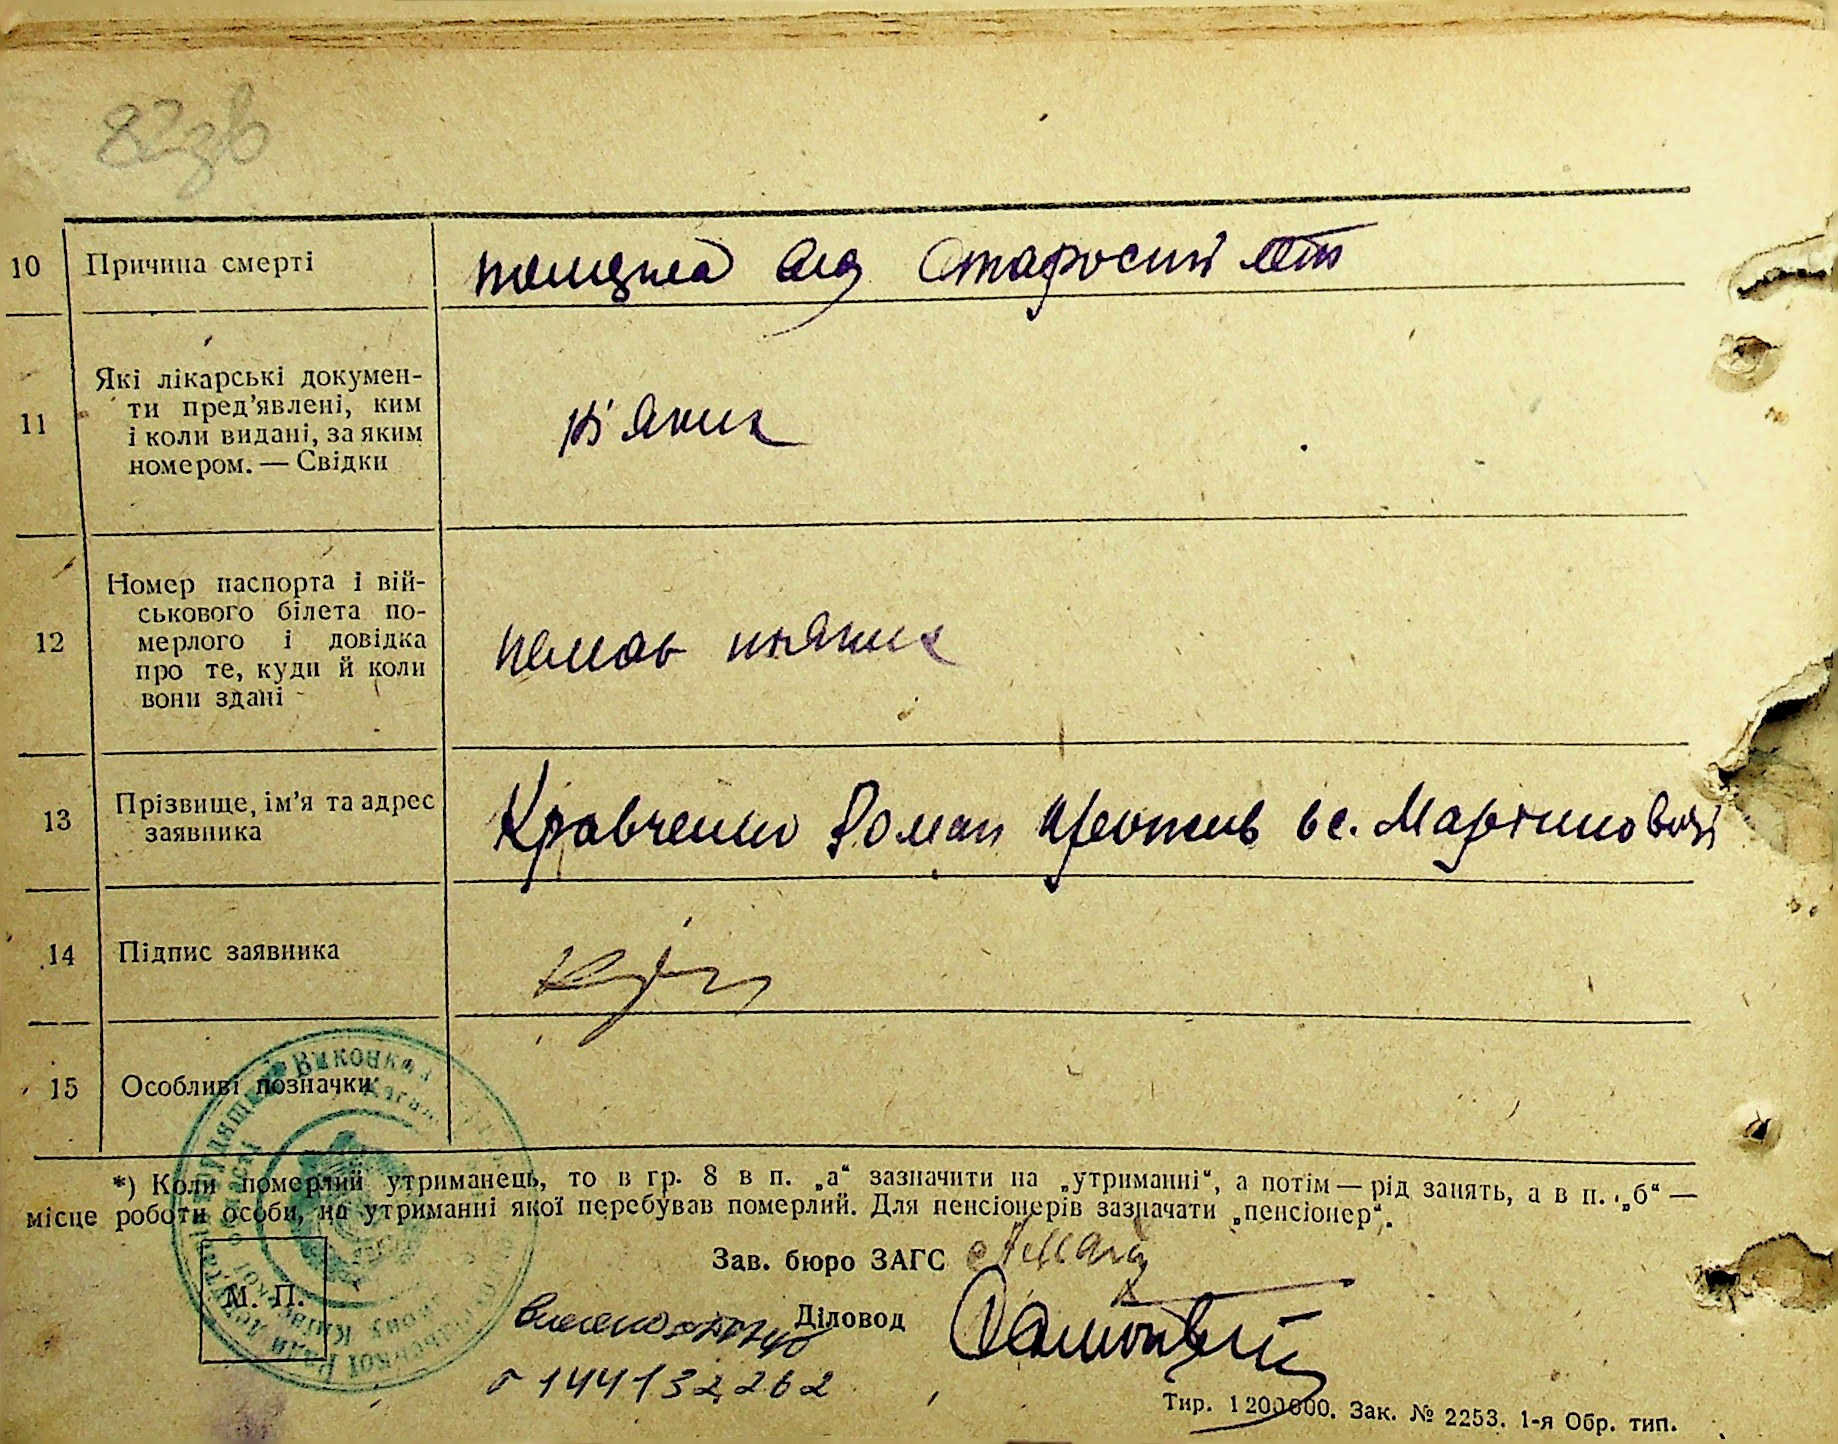 82зв
10 Причина смерті померла від старости літ
11 Які лікарські докумен-
ти пред'явлені, ким
і коли видані, за яким
номером. — Свідки
ніяких
12 Номер паспорта і вій-
ськового білета по-
мерлого і довідка
про те, куди й коли
вони здані
немає ніяких
13 Прізвище, ім'я та адрес
заявника
Кравченко Роман в с. Мартиновці
14 Підпис заявника
15 Особливі позначки
*) Коли померлий утриманець, то в гр. 8 в п. „а“ зазначити на „утриманні“, а потім — рід занять, а в п. „б“ —
місце роботи особи, на утриманні якої перебував померлий. Для пенсіонерів зазначати „пенсіонер“.
Зав. бюро ЗАГС
М. П.
Діловод
144132262
Тир. 1200000. Зак. № 2253. 1-я Обр. тип.